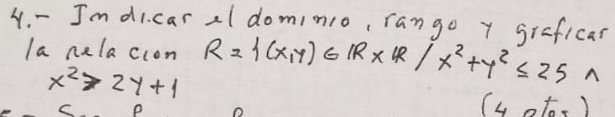 4.- Indicar el dominio, rango y graficar
la relacion R = {(x,y) ∈ IR x IR / x² + y² ≤ 25 ∧
x² > 2y + 1
(4 ptos)